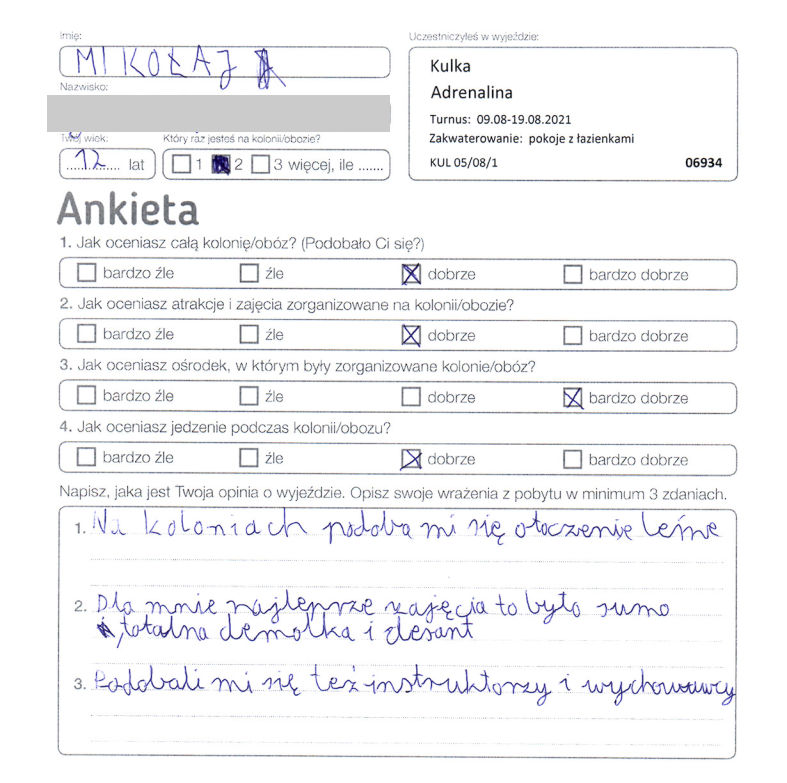 Imię:
MIKOŁAJ
Uczestniczyłeś w wyjeździe:
Kulka
Adrenalina
Turnus: 09.08-19.08.2021
Zakwaterowanie: pokoje z łazienkami
KUL 05/08/1 06934
Nazwisko:
Twój wiek:
12 lat
Który raz jesteś na kolonii/obozie?
1 2 3 więcej, ile .......
Ankieta
1. Jak oceniasz całą kolonię/obóz? (Podobało Ci się?)
bardzo źle źle dobrze bardzo dobrze
2. Jak oceniasz atrakcje i zajęcia zorganizowane na kolonii/obozie?
bardzo źle źle dobrze bardzo dobrze
3. Jak oceniasz ośrodek, w którym były zorganizowane kolonie/obóz?
bardzo źle źle dobrze bardzo dobrze
4. Jak oceniasz jedzenie podczas kolonii/obozu?
bardzo źle źle dobrze bardzo dobrze
Napisz, jaka jest Twoja opinia o wyjeździe. Opisz swoje wrażenia z pobytu w minimum 3 zdaniach.
1. Na koloniach podoba mi się otoczenie leśne
2. Dla mnie najleprze zajęcia to było sumo
, totalna demolka i desant
3. Podobali mi się też instruktorzy i wychowawcy